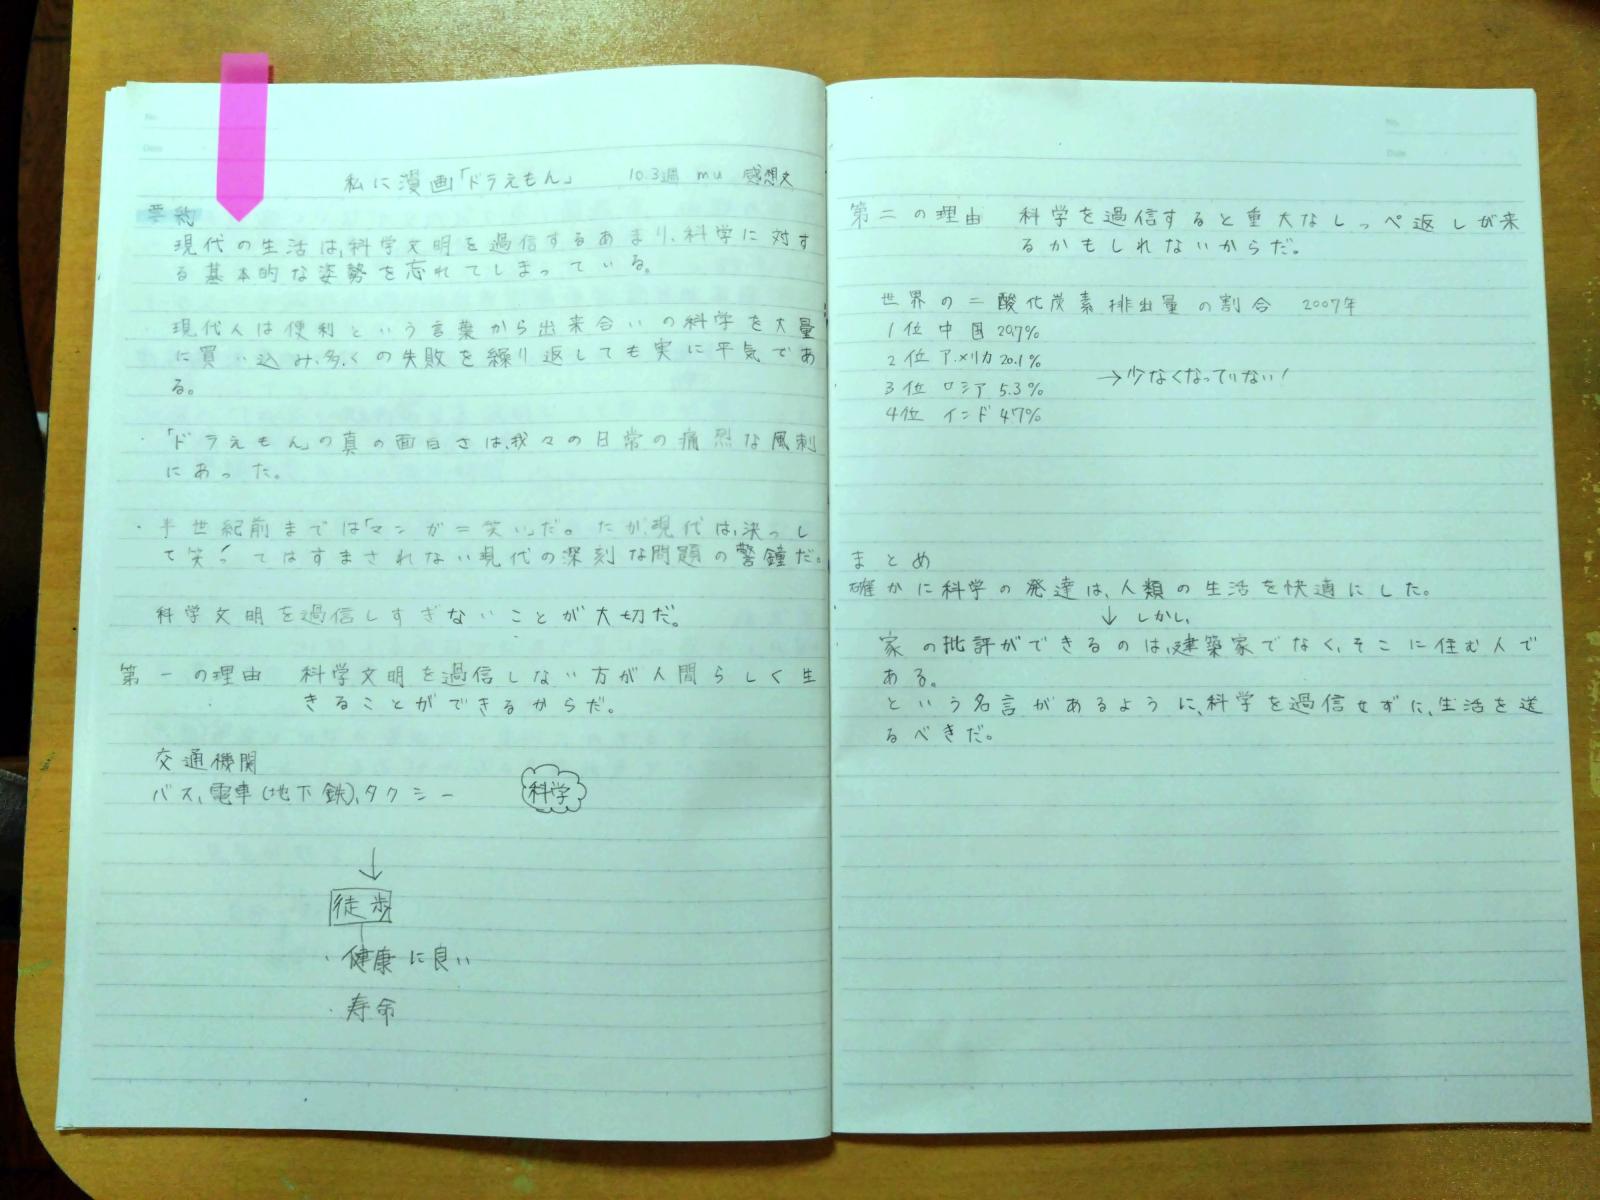 私に漫画「ドラえもん」 10.3週 mu 感想文
要約
現代の生活は、科学文明を過信するあまり、科学に対す
る基本的な姿勢を忘れてしまっている。
・現代人は便利という言葉から出来合いの科学を大量
に買い込み、多くの失敗を繰り返しても実に平気であ
る。
・「ドラえもん」の真の面白さは、我々の日常の痛烈な風刺
にあった。
・半世紀前までは「マンガ=笑い」だ。だが、現代は、決っし
て笑ってはすまされない現代の深刻な問題の警鐘だ。
科学文明を過信しすぎないことが大切だ。
第一の理由 科学文明を過信しない方が人間らしく生
きることができるからだ。
交通機関
バス、電車(地下鉄)、タクシー 科学
↓
徒歩
・健康に良い
・寿命
第二の理由 科学を過信すると重大なしっぺ返しが来
るかもしれないからだ。
世界の二酸化炭素排出量の割合 2007年
1位 中国 20.7%
2位 アメリカ 20.1%
→少なくなっていない!
3位 ロシア 5.3%
4位 インド 4.7%
まとめ
確かに科学の発達は、人類の生活を快適にした。
↓ しかし、
家の批評ができるのは、建築家でなく、そこに住む人で
ある。
という名言があるように、科学を過信せずに、生活を送
るべきだ。